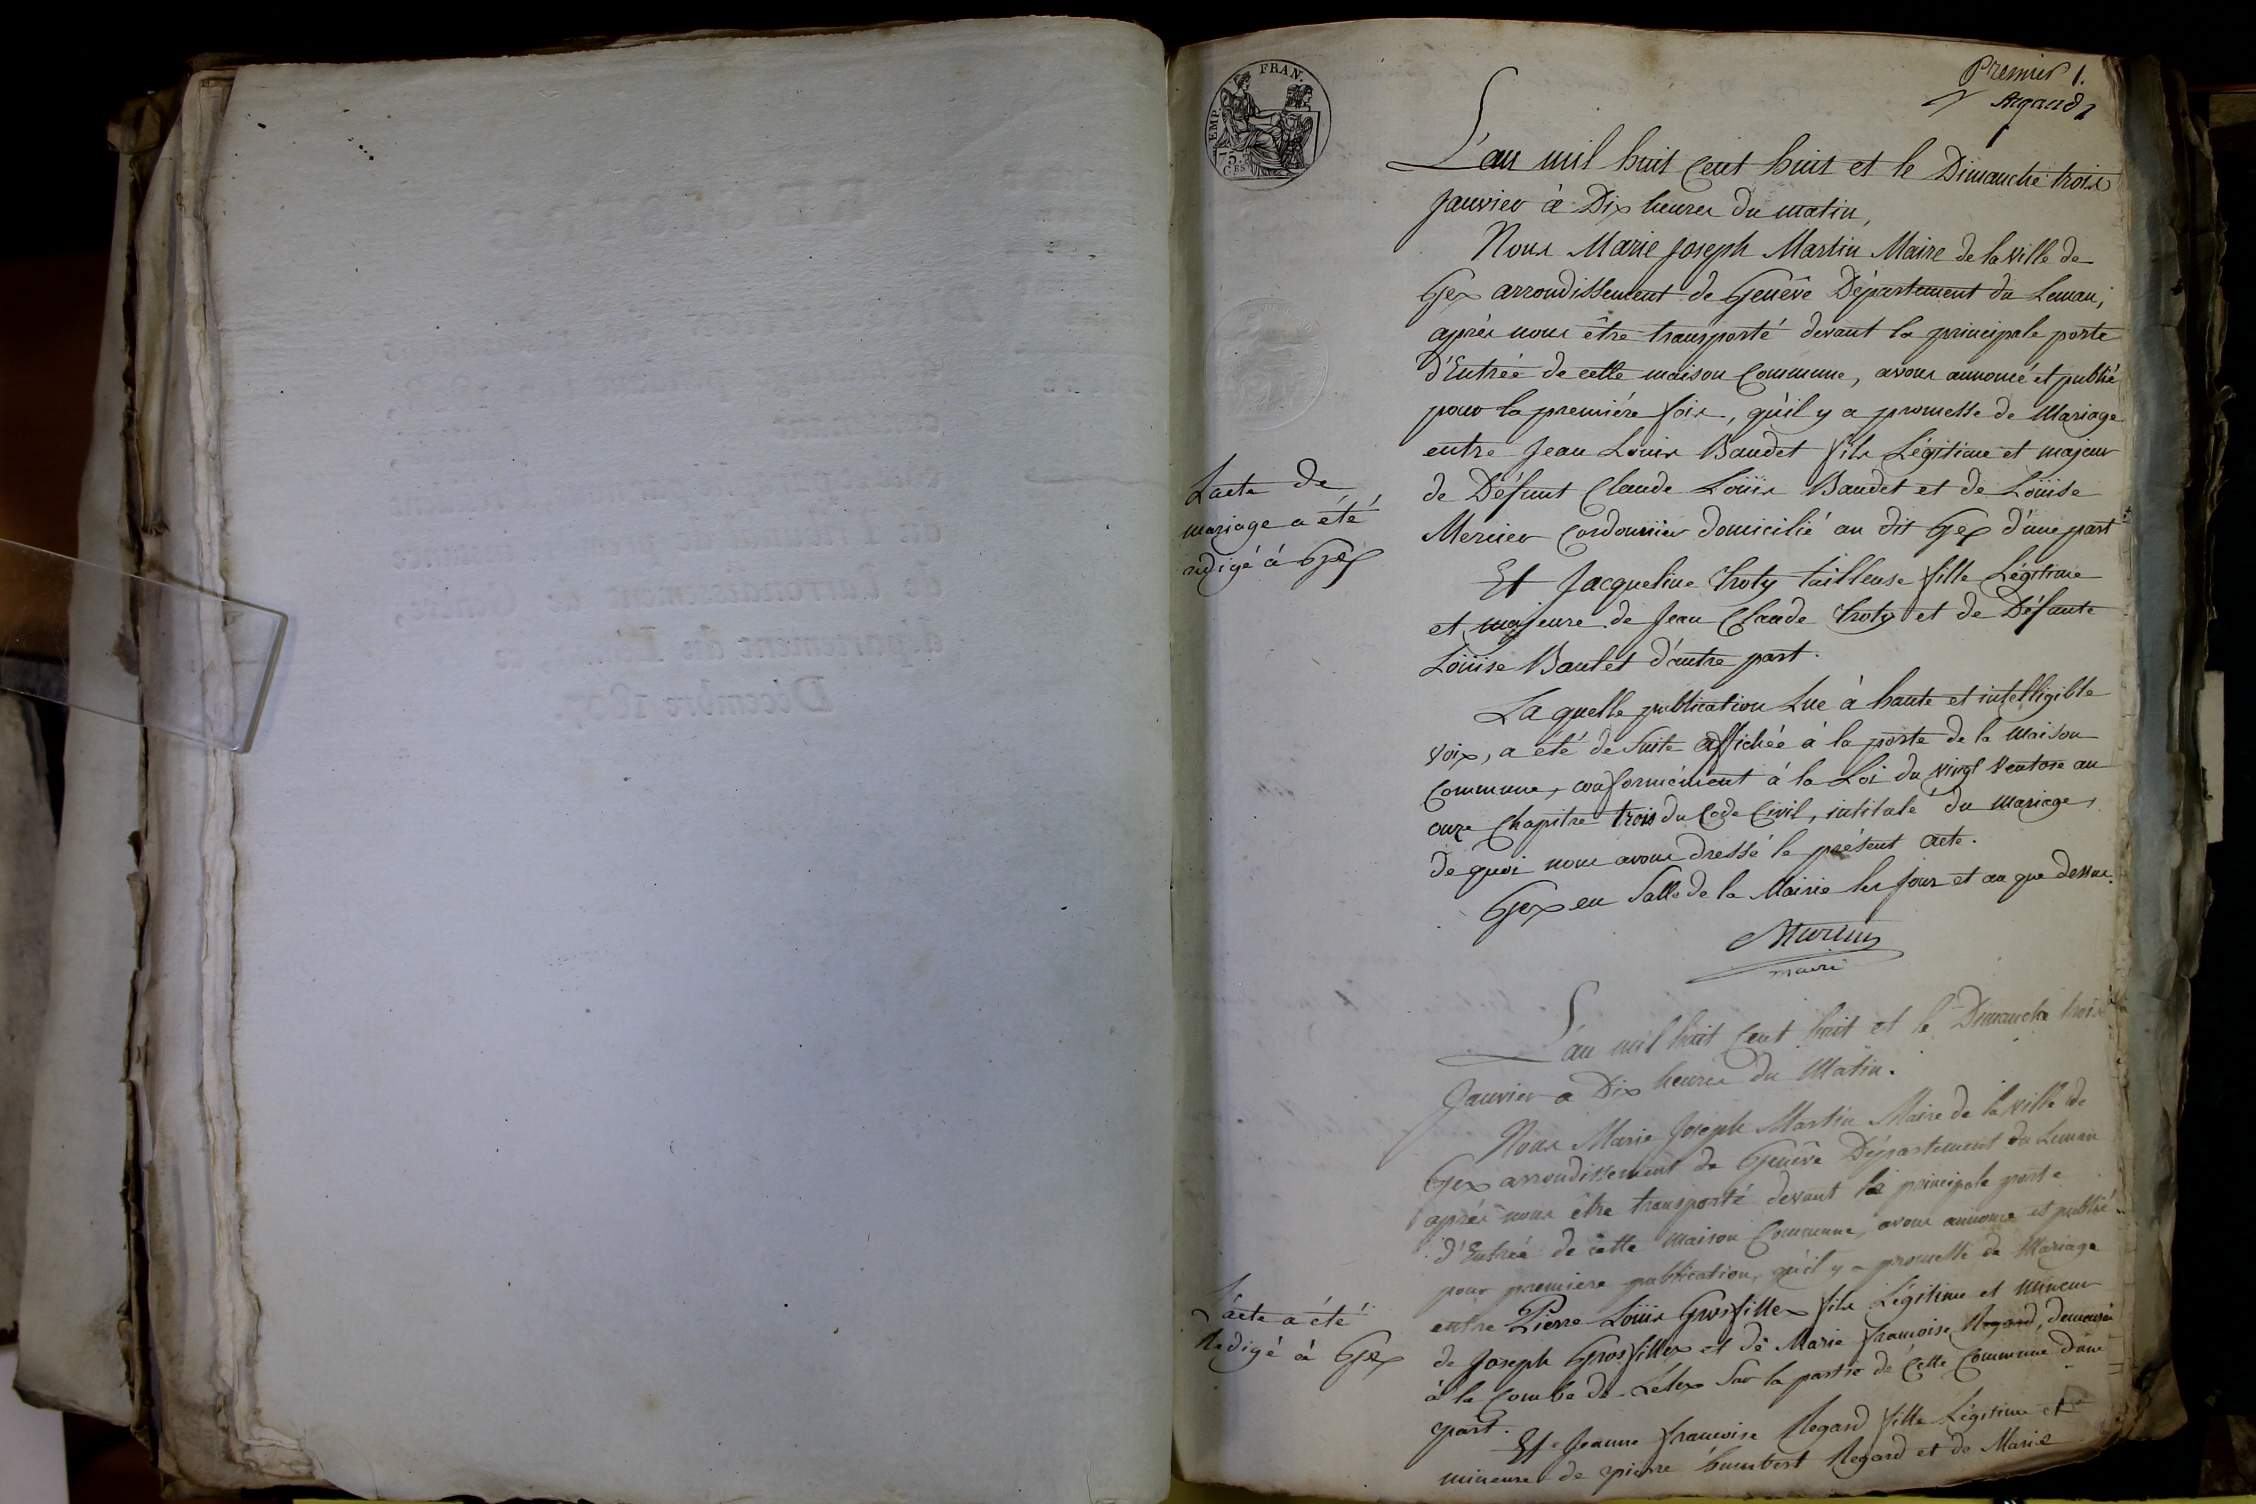 FRAN.
EMP.
75.
CES
Premier 1.
Argaud
L'an mil huit Cent huit et le Dimanche trois
Janvier à Dix heures du matin,
Nous Marie Joseph Martin Maire de la ville de
Gex arrondissement de Genêve Département du Leman,
après nous être transporté devant la principale porte
d'Entrée de cette maison Commune, avons annoncé et publié
pour la première fois, qu'il y a promesse de Mariage
entre Jean Louis Baudet fils Légitime et majeur
de Défunt Claude Loüis Baudet et de Loüise
Mercier Cordonnier domicilié au dit Gex d'une part
Et Jacqueline Troty tailleuse fille Légitime
et majeure de Jean Claude Troty et de Défunte
Loüise Baulet d'autre part.
La quelle publication Lue à haute et intelligible
voix, a été de Suite affichée à la porte de la Maison
Commune, conformément à la Loi du vingt Ventose an
onze Chapitre trois du Code Civil, intitulé du Mariage,
de quoi nous avons dressé le présent acte.
Gex en Salle de la Mairie les jour et an que dessus.
Martin
maire
Lacte de
mariage a été
redigé à Gex
L'an mil huit Cent huit et le Dimanche trois
Janvier a Dix heures du Matin.
Nous Marie Joseph Martin Maire de la ville de
Gex arrondissement de Genêve Département du Leman
après nous être transporté devant la principale porte
d'Entrée de cette maison Commune, avons annoncé et publié
pour premiere publication, qu'il y a promesse de Mariage
entre Pierre Loüis Grosfillex fils Légitime et mineur
de Joseph Grosfillex et de Marie françoise Regard, demeurant
à la Combe de Lélex Sur la partie de Cette Commune d'une
part.
Et Jeanne françoise Regard fille Légitime et
mineure de pierre humbert Regard et de Marie
L'acte a été
Redigé à Gex
de l'arrondissement de Genève,
département du Léman, ce
Décembre 1807.